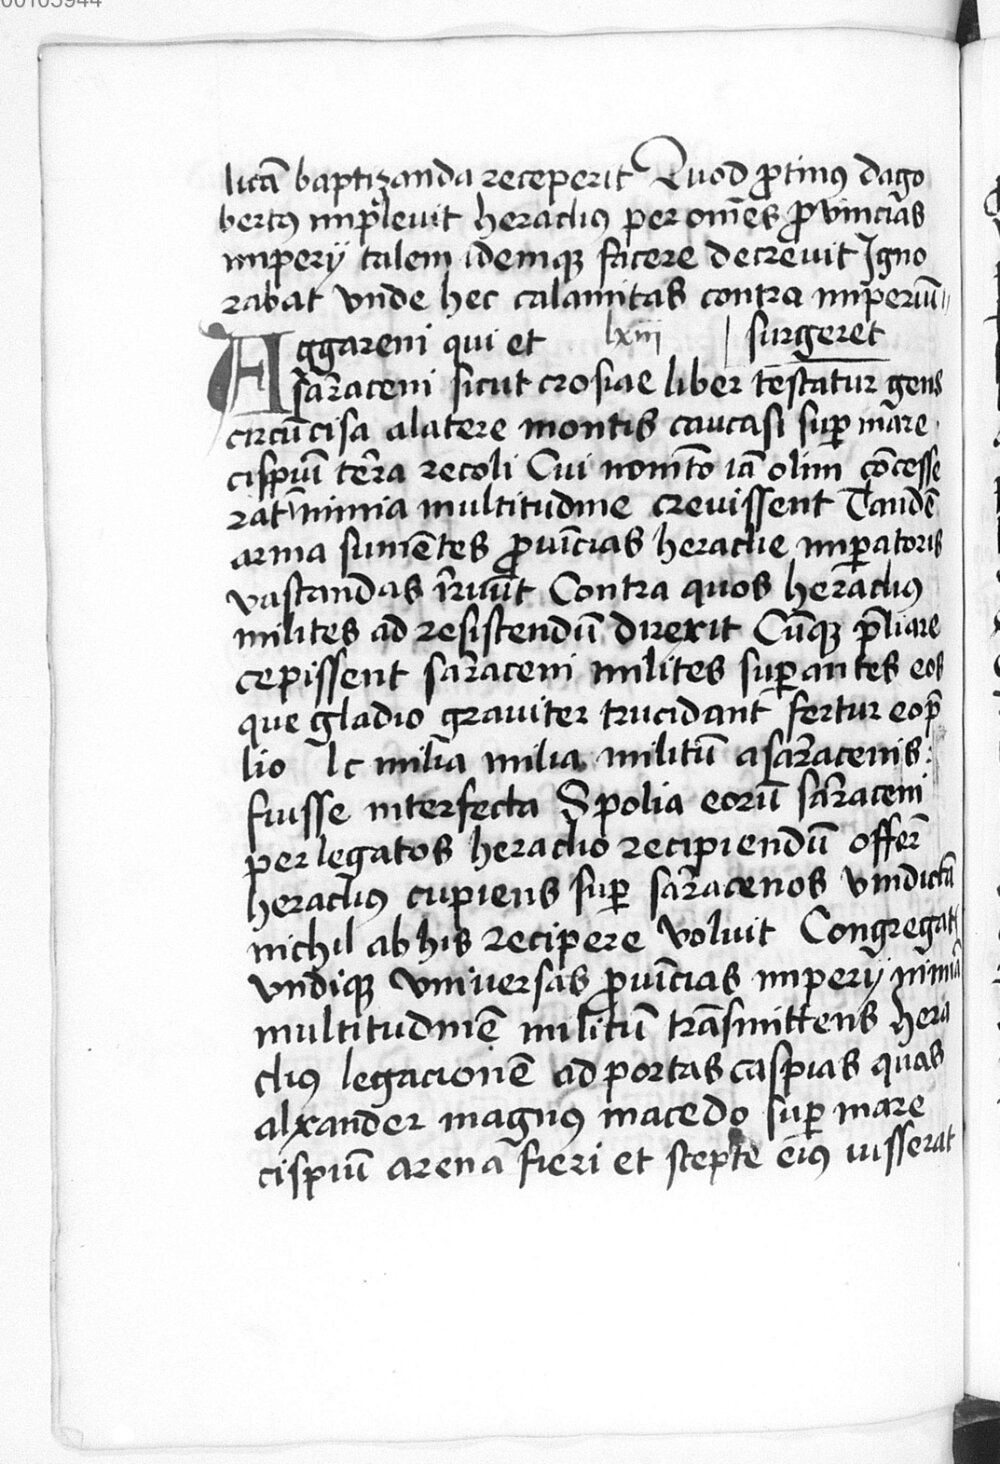 00103944
licā baptizanda receperit Quod ꝓtinꝰ dago
bertꝰ implevit heraclius per om̄es ꝓvincias
impery talem idemqꝫ facere decrevit Igno
rabat vnde hec calamitas contra imperiū
Aggareni qui et lxiii surgeret
sarraceni sicut crosiae liber testatur gens
circūcisa alatere montis caucasi suꝑ mare
cispiū terra recoli Cui nomīto iā olim cōcesse
rāt nimia multitudine crevissent Tandē
arma sumētes ꝓvīcias heraclie imꝑatoris
vastandas irruūt Contra quos heraclius
milites ad resistendū direxit Cūqꝫ p̄liare
cepissent sarraceni milites suꝑantes eos
que gladio graviter trucidant fertur eo p̄
lio lc milia milia militū a sarracenis
fuisse interfecta Spolia eorū sarraceni
per legatos heraclio recipiendū offer̄
heraclius cupiens suꝑ sarracenos vindictā
nichil ab his recipere voluit Congregat
vndiqꝫ vniuersas ꝓvīcias impery nimiā
multitudinē militū trāsmittens hera
clius legacionē ad portas caspias quas
alxander magnus macedo suꝑ mare
cispiū arena fieri et stepte eiꝰ iusserat